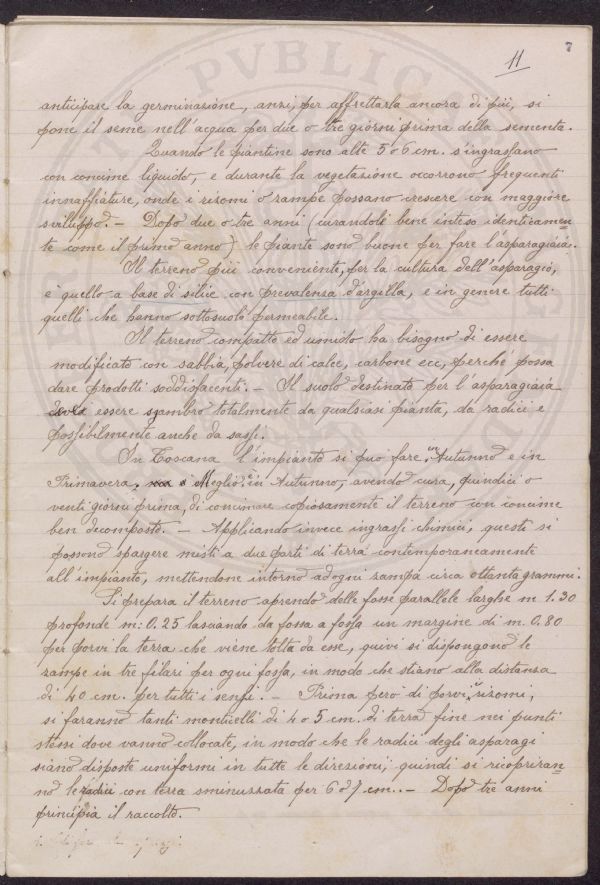 7
11
anticipare la germinazione, anzi, per affrettarla ancora di più, si
pone il seme nell'acqua per due o tre giorni prima della sementa.
Quando le piantine sono alte 5 o 6 cm. s'ingrassano
con concime liquido, e durante la vegetazione occorrono frequenti
innaffiature, onde i rizomi o zampe possano crescere con maggiore
sviluppo. — Dopo due o tre anni (curandole bene inteso identicamen-
te come il primo anno) le piante sono buone per fare l'asparagiaia.
Il terreno più conveniente, per la cultura dell'asparagio,
è quello a base di silice con prevalenza d'argilla, e in genere tutti
quelli che hanno sottosuolo permeabile.
Il terreno compatto ed umido ha bisogno di essere
modificato con sabbia, polvere di calce, carbone ecc, perché possa
dare prodotti soddisfacenti. — Il suolo destinato per l'asparagiaia
essere sgombro totalmente da qualsiasi pianta, da radici e
possibilmente anche da sassi.
In Toscana l'impianto si può fare in Autunno e in
Primavera, Meglio è in Autunno, avendo cura, quindici o
venti giorni prima, di concimare copiosamente il terreno con concime
ben decomposto. — Applicando invece ingrassi chimici, questi si
possono spargere misti a due parti di terra contemporaneamente
all'impianto, mettendone intorno ad ogni zampa circa ottanta grammi.
Si prepara il terreno aprendo delle fosse parallele larghe m 1.30
profonde m: 0.25 lasciando da fossa a fossa un margine di m. 0.80
per porvi la terra che viene tolta da esse, quivi si dispongono le
zampe in tre filari per ogni fossa, in modo che stiano alla distanza
di 40 cm. per tutti i sensi. — Prima però di porvi i rizomi,
si faranno tanti monticelli di 4 o 5 cm. di terra fine nei punti
stessi dove vanno collocate, in modo che le radici degli asparagi
siano disposte uniformi in tutte le direzioni; quindi si ricopriran-
no le radici con terra sminuzzata per 6 o 7 cm. — Dopo tre anni
principia il raccolto.